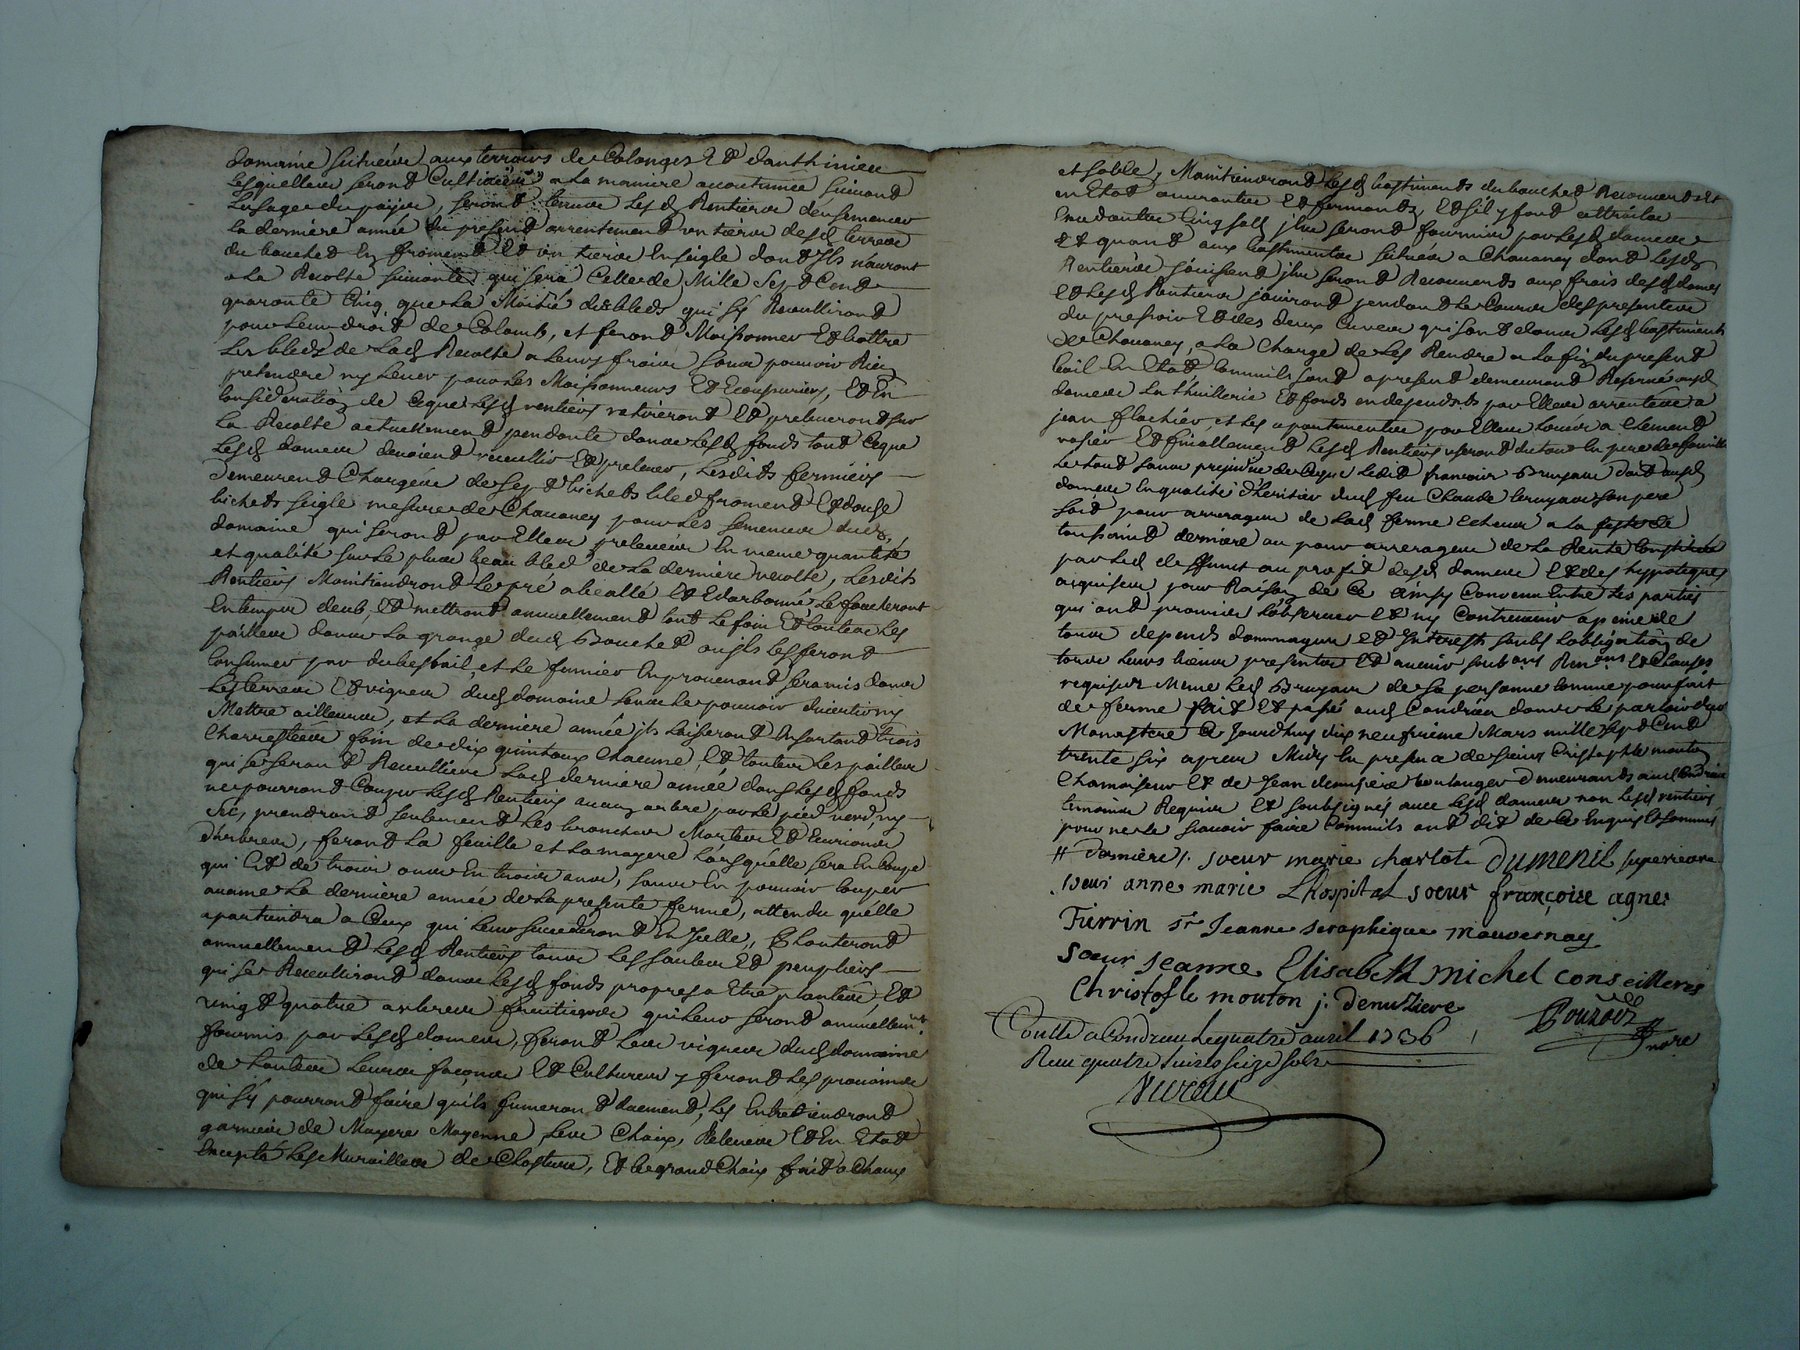 domaine situées aux terroirs de Colonges Et danthinieu
lesquelles seront Cultivées a la maniere acoutumée suivant
Lusage du païs, seront tenus Lesd Rentiers densemencer
la derniere année du present arrentement un tiers desd terres
du bouchet En froment Et un tiers En seigle dont Ils n'auront
a La Recolte suivante qui sera Celle de Mille Sept Cent
quarante Cinq que La Moitié des bleds qui sy Recueilliront
pour Leur droit de Colomb, et feront Moissonner Et battre
Les bleds de Lad Recolte a Leurs fraix sans pouvoir Rien
pretendre ny Lever pour Les Moissonneurs Et Ecossuriers, Et En
Consideration de Ceque Lesd rentiers retireront Et preleveront sur
La Recolte actuellement pendante dans Lesd fonds tout Ceque
Lesd dames devoient recueillir Et prelever, Lesdits fermiers
Demeurent Chargés de sept bichets bled froment Et douse
bichets seigle mesure de Chavanay pour Les semences dud
domaine qui seront par Elles prelevées En meme quantité
et qualité sur Le plus beau bled de La derniere recolte, Lesdits
Rentiers Maintiendront Le pré abeallé Et Edarbonné Le faucheront
En temps deub, Et mettront annuellement tout Le foin Et toutes Les
pailles dans La grange dud Bouchet ou ils Les feront
Consumer par du bestail, et Le fumier En provenant sera mis dans
Les terres Et vignes dud domaine sans Le pouvoir divertir ny
Mettre ailleurs, et La derniere année ils Laisseront En sortant trois
Charrettées foin de dix quintaux Chacune, Et toutes Les pailles
qui se seront Recueillies Lad derniere année dans Lesd fonds
ne pourront Couper Lesd Rentiers aucun arbre par Le pied verd, ny
sec, prendront seulement Les branches Mortes Et Environs
dherbes, feront La feuille et La mayere Lorsquelle sera En Coupe
qui Est de trois ans En trois ans, sans En pouvoir Couper
aucune La derniere année de La presente ferme, attendu quelle
apartiendra a Ceux qui Leur succederont En Icelle, Planteront
annuellement Lesd Rentiers tous Les saules Et peupliers
qui se Recueilliront dans Lesd fonds propres a Etre plantés, Et
vingt quatre arbres fruitiers qui Leur seront annuellemnt
fournis par Lesd dames, feront Les vignes dud domaine
de toutes Leurs façons Et Cultures y feront Les provins
qui sy pourront faire quils fumeront duement, Les Entretiendront
garnies de Mayere Moyenne Les Chaix, Relevées Et En Etat
Excepté Les Murailles de Closture, Et Le grand Chaix fait a Chaux
et sable, Maintiendront Lesd bastiments du bouchet Recouverts Et
en Etat ouvrantes Et fermants, Et sil y faut attraits
Excedants Cinq sols ils seront fournis par Lesd dames
Et quant aux bastiments situés a Chavanay dont Lesd
Rentiers Jouissent ils seront Recouverts aux frais desd dames
Et Lesd Rentiers jouiront pendant Le Cours des presentes
du pressoir Et des deux Cuves qui sont dans Lesd bastiments
de Chavanay, a La Charge de Les Rendre a La fin du present
bail En Etat Comm'ils sont a present demeurant Reservé ausd
dames La thuillerie Et fonds en dependents par Elles arrentés a
jean flachier, et Les apartements par Elles Loués a Clement
rosier Et finallement Lesd Rentiers useront du tout En pere de famille
Le tout sans prejudice de Ceque Ledit francois Bruyas doit ausd
dames En qualité d'heritier dud feu Claude bruyas son pere
soit pour arrerages de Lad ferme Echeus a La feste de
toussaint derniere ou pour arrerages de La Rente Constituée
par Led deffunt au profit desd dames Et des hypoteques
acquises pour Raison de Ce ainsy Convenu Entre Les parties
qui ont promis L'observer Et ny Contrevenir a peine de
tous depends dommages Et Interests soubs Lobligation de
tous Leurs biens presents Et avenir soub ons Renons Et Clauses
requises Meme Led Bruyas de sa personne Comme pour fait
de ferme fait Et passé aud Condrieu dans Le parloir dud
Monastere Ce Jourdhuy dix neufvieme Mars mille sept Cent
trente six apres Midy En presence de sieurs Cristophle mouton
Chamoiseur Et de Jean denuziere boulanger Demeurants aud Condrieu
temoins Requis Et soubsignés avec Lesd dames non Lesd rentiers
pour ne le scavoir faire Comm'ils ont dit de Ce Enquis Et sommés
# Derniere /. soeur marie charlote DUMENIL superieure
soeur anne marie L'hospital soeur françoise agnes
Fierrin sr Jeanne seraphique mauvernay
soeur Jeanne Elisabeth michel conseilleres
Christofle mouton j. denuziere
Controllé a Condrieu Le quatre avril 1736
Receu quatre livres seize sols